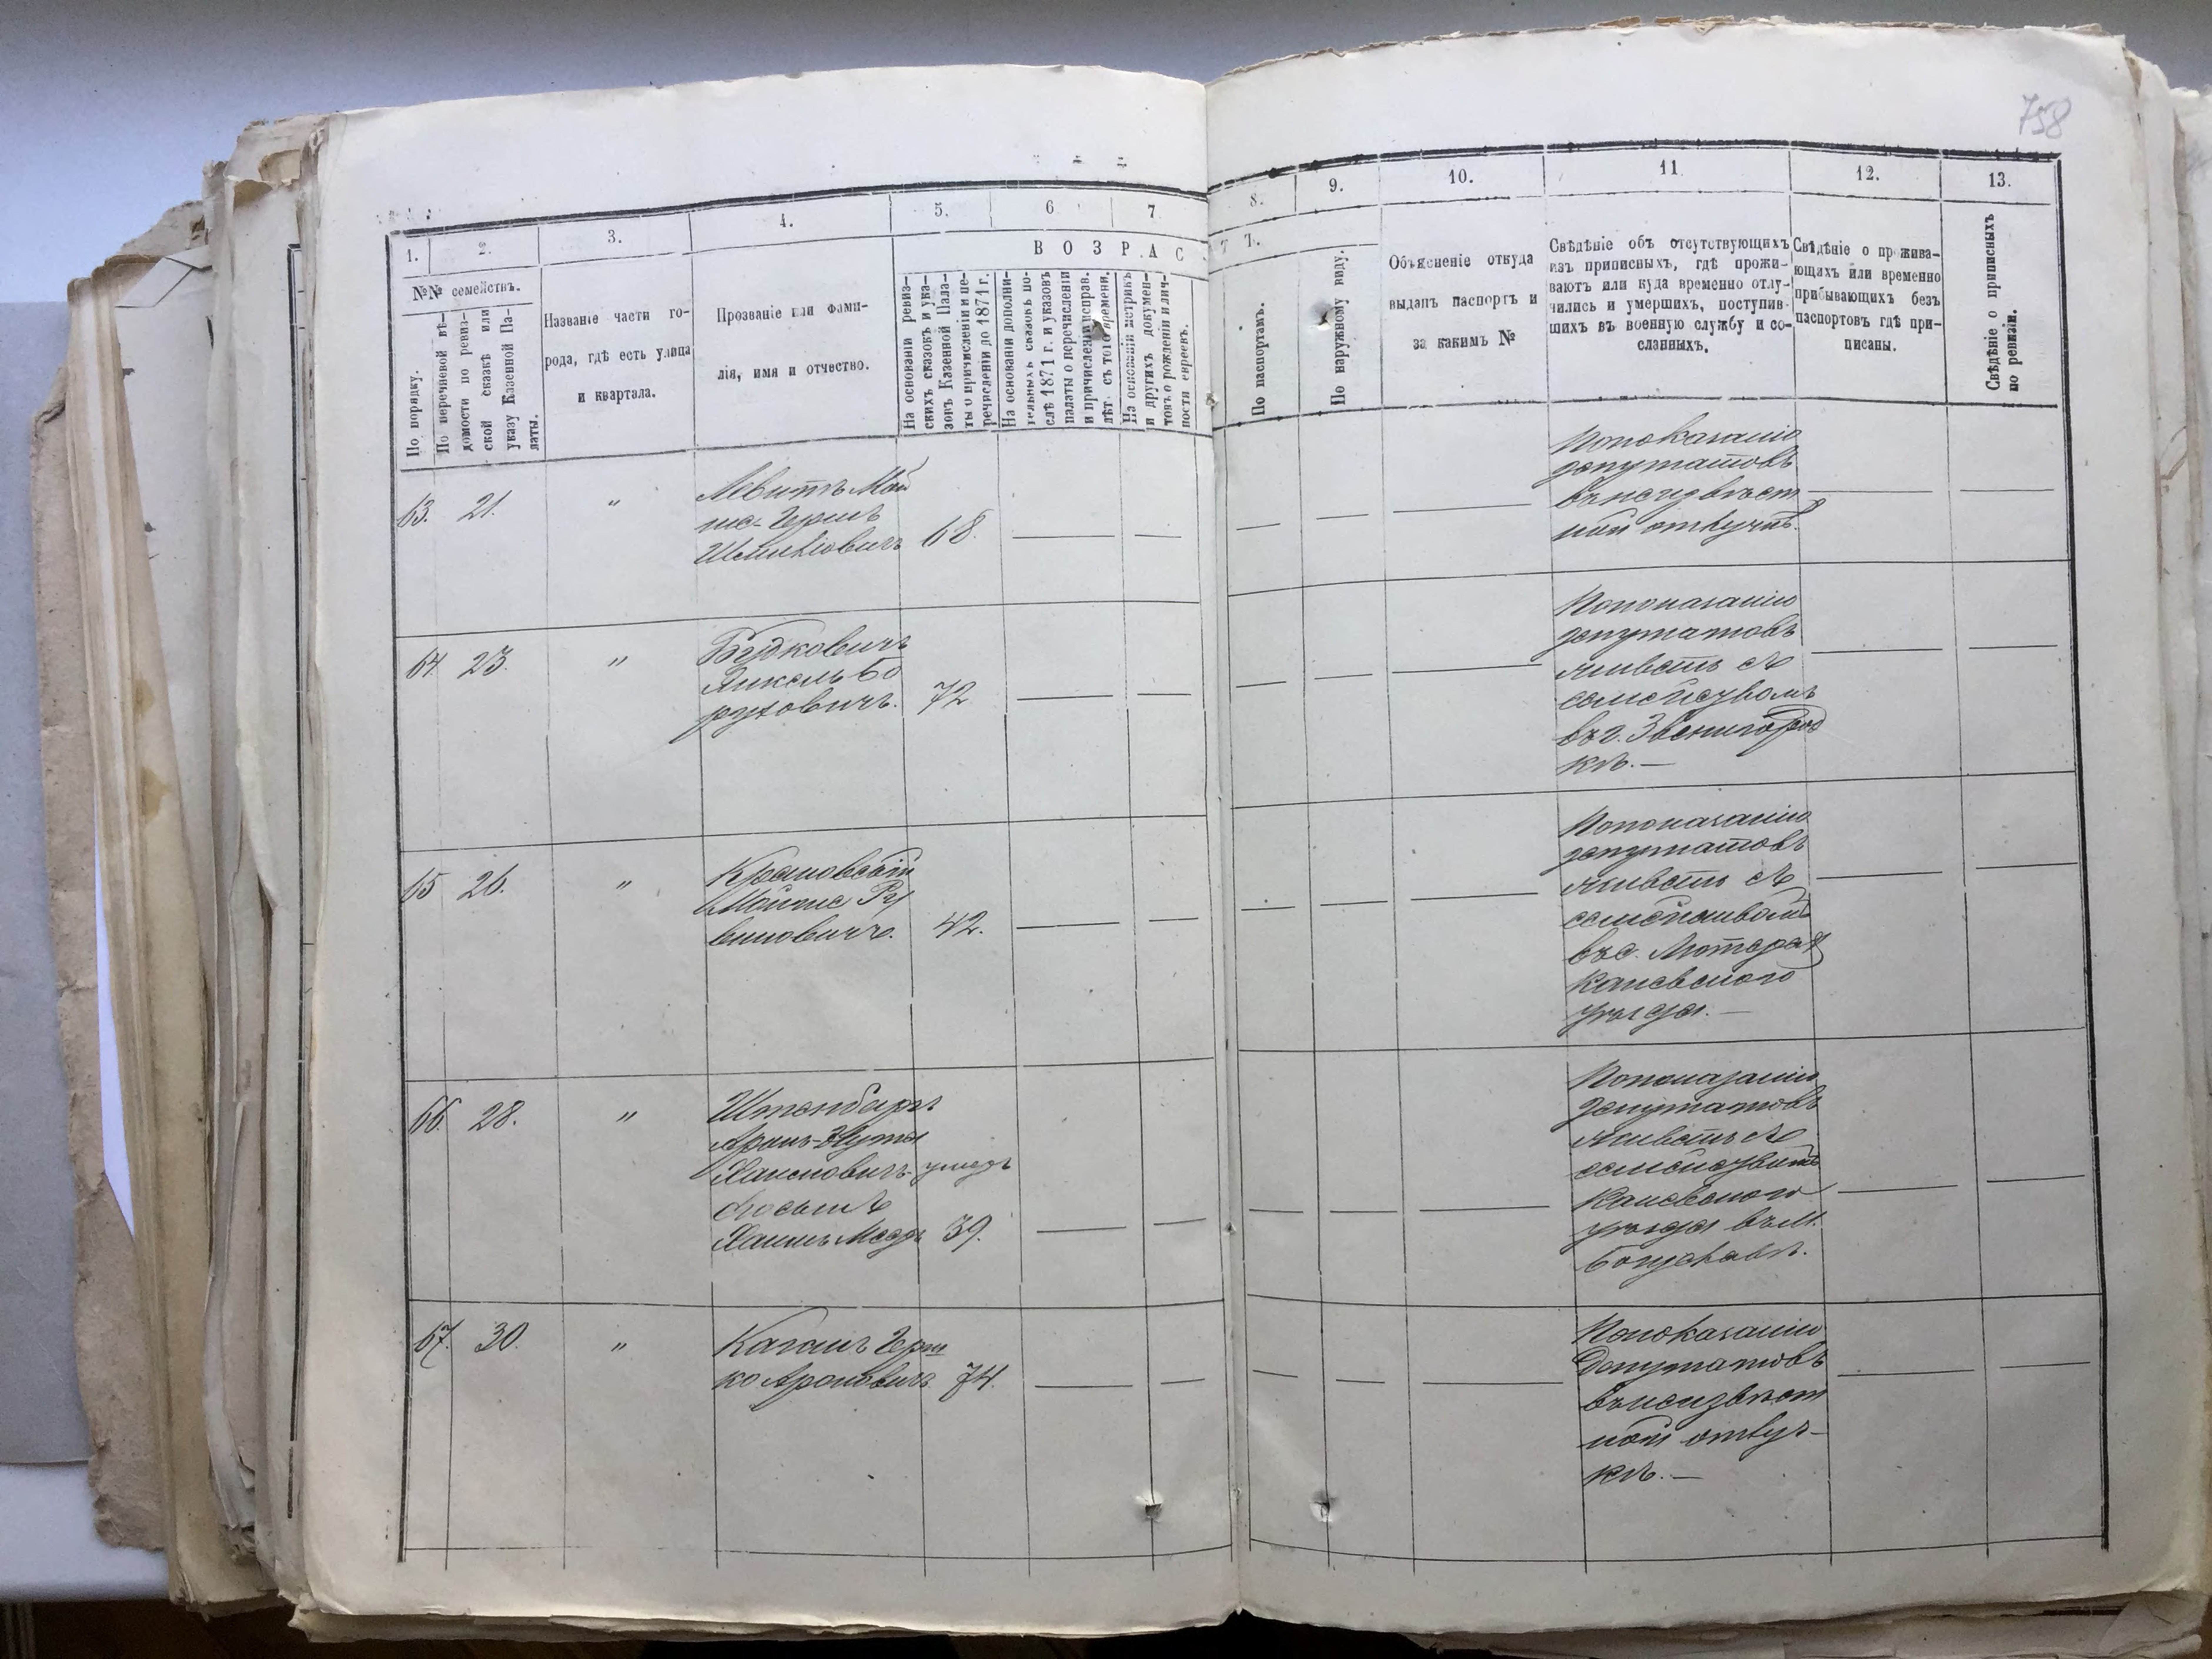 758
1.
2.
3.
4.
5.
6
7
8.
9.
10.
11
12.
13.
В О З Р А С Т Ъ.
№№ семействъ.
По порядку.
По перечневой вѣ-
домости по ревиз-
ской сказкѣ или
указу Казенной Па-
латы.
Названіе части го-
рода, гдѣ есть улица
и квартала.
Прозваніе или фами-
лія, имя и отчество.
На основаніи ревиз-
скихъ сказокъ и ука-
зовъ Казенной Пала-
ты о причисленіи и пе-
речисленіи до 1871 г.
На основаніи дополни-
тельныхъ сказокъ по-
слѣ 1871 г. и указовъ
палаты о перечисленіи
и причисленіи исправ.
лѣт. съ того времени.
На основаніи метрикъ
и другихъ докумен-
товъ о рожденіи и лич-
ности евреевъ.
По паспортамъ.
По наружному виду.
Объясненіе откуда
выданъ паспортъ и
за какимъ №
Свѣдѣніе объ отсутствующихъ
изъ приписныхъ, гдѣ прожи-
ваютъ или куда временно отлу-
чились и умершихъ, поступив-
шихъ въ военную службу и со-
сланныхъ.
Свѣдѣніе о прожива-
ющихъ или временно
прибывающихъ безъ
паспортовъ гдѣ при-
писаны.
Свѣдѣніе о приписныхъ
по ревизіи.
63. 21. "
Левитъ Мой
ше-Герш
Шмилiовичъ 68.
По показанію
депутатовъ
въ неизвѣст
ной отлучкѣ.
64 23. "
Будковичъ
Янкель Бо
руховичъ. 72
По показанію
депутатовъ
живетъ съ
семействомъ
въ г. Звенигород
кѣ. —
65 26. "
Мойше Ру
виновичъ. 42.
По показанію
депутатовъ
живетъ съ
семействомъ
въ с.
Каневского
уѣзда. —
66. 28. "
Хаимовичъ умеръ
Хаимъ 39.
По показанію
депутатовъ
живетъ съ
семействомъ
Каневского
уѣзда въ м.
Богуславѣ.
67. 30. "
Каганъ Герш
ко Ароновичъ 74.
По показанію
Депутатовъ
въ неизвѣст
ной отлуч-
кѣ. —